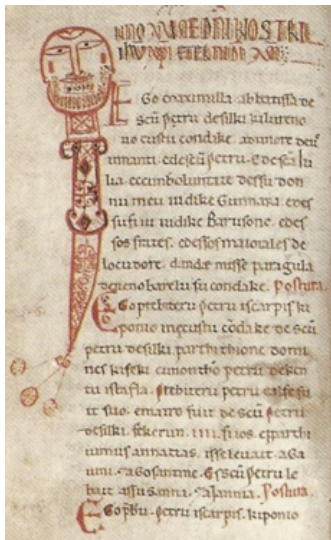 IN NOMINE DNI NOSTRI
IHU XPI ETERNI DI AM
EGo maximilla abbatissa de
scū petru desilki kilureno
uo custu condake. adunore deu᷒
innanti. edescū petru. e desca iu
lia. eccunboluntate dessu don
nu meu iudike Gunnari. edes
su fiiu iudike Barusone. edes
sos frates. edessos maiorales de
locudore. dandem isse paragula
de renobarelu su condake. Postura.
Ego presbiteru petru iscarpis ki
ponio inecustu cōdake de scū
petru desilki. parthithione domi
nes kifeki cumontho petru deken
tu istafla. Presbiteru petru
it suo. emairo fuit de scū petru
desilki. fekerun. IIII. fiios. eparthi
uimus annatias. isse leuait. aGa
uini. 7 aGosantine. Escū petru le
bait assusanna. 7 aIannia. Postura.
Ego pbr. petru iscarpis. kiponio